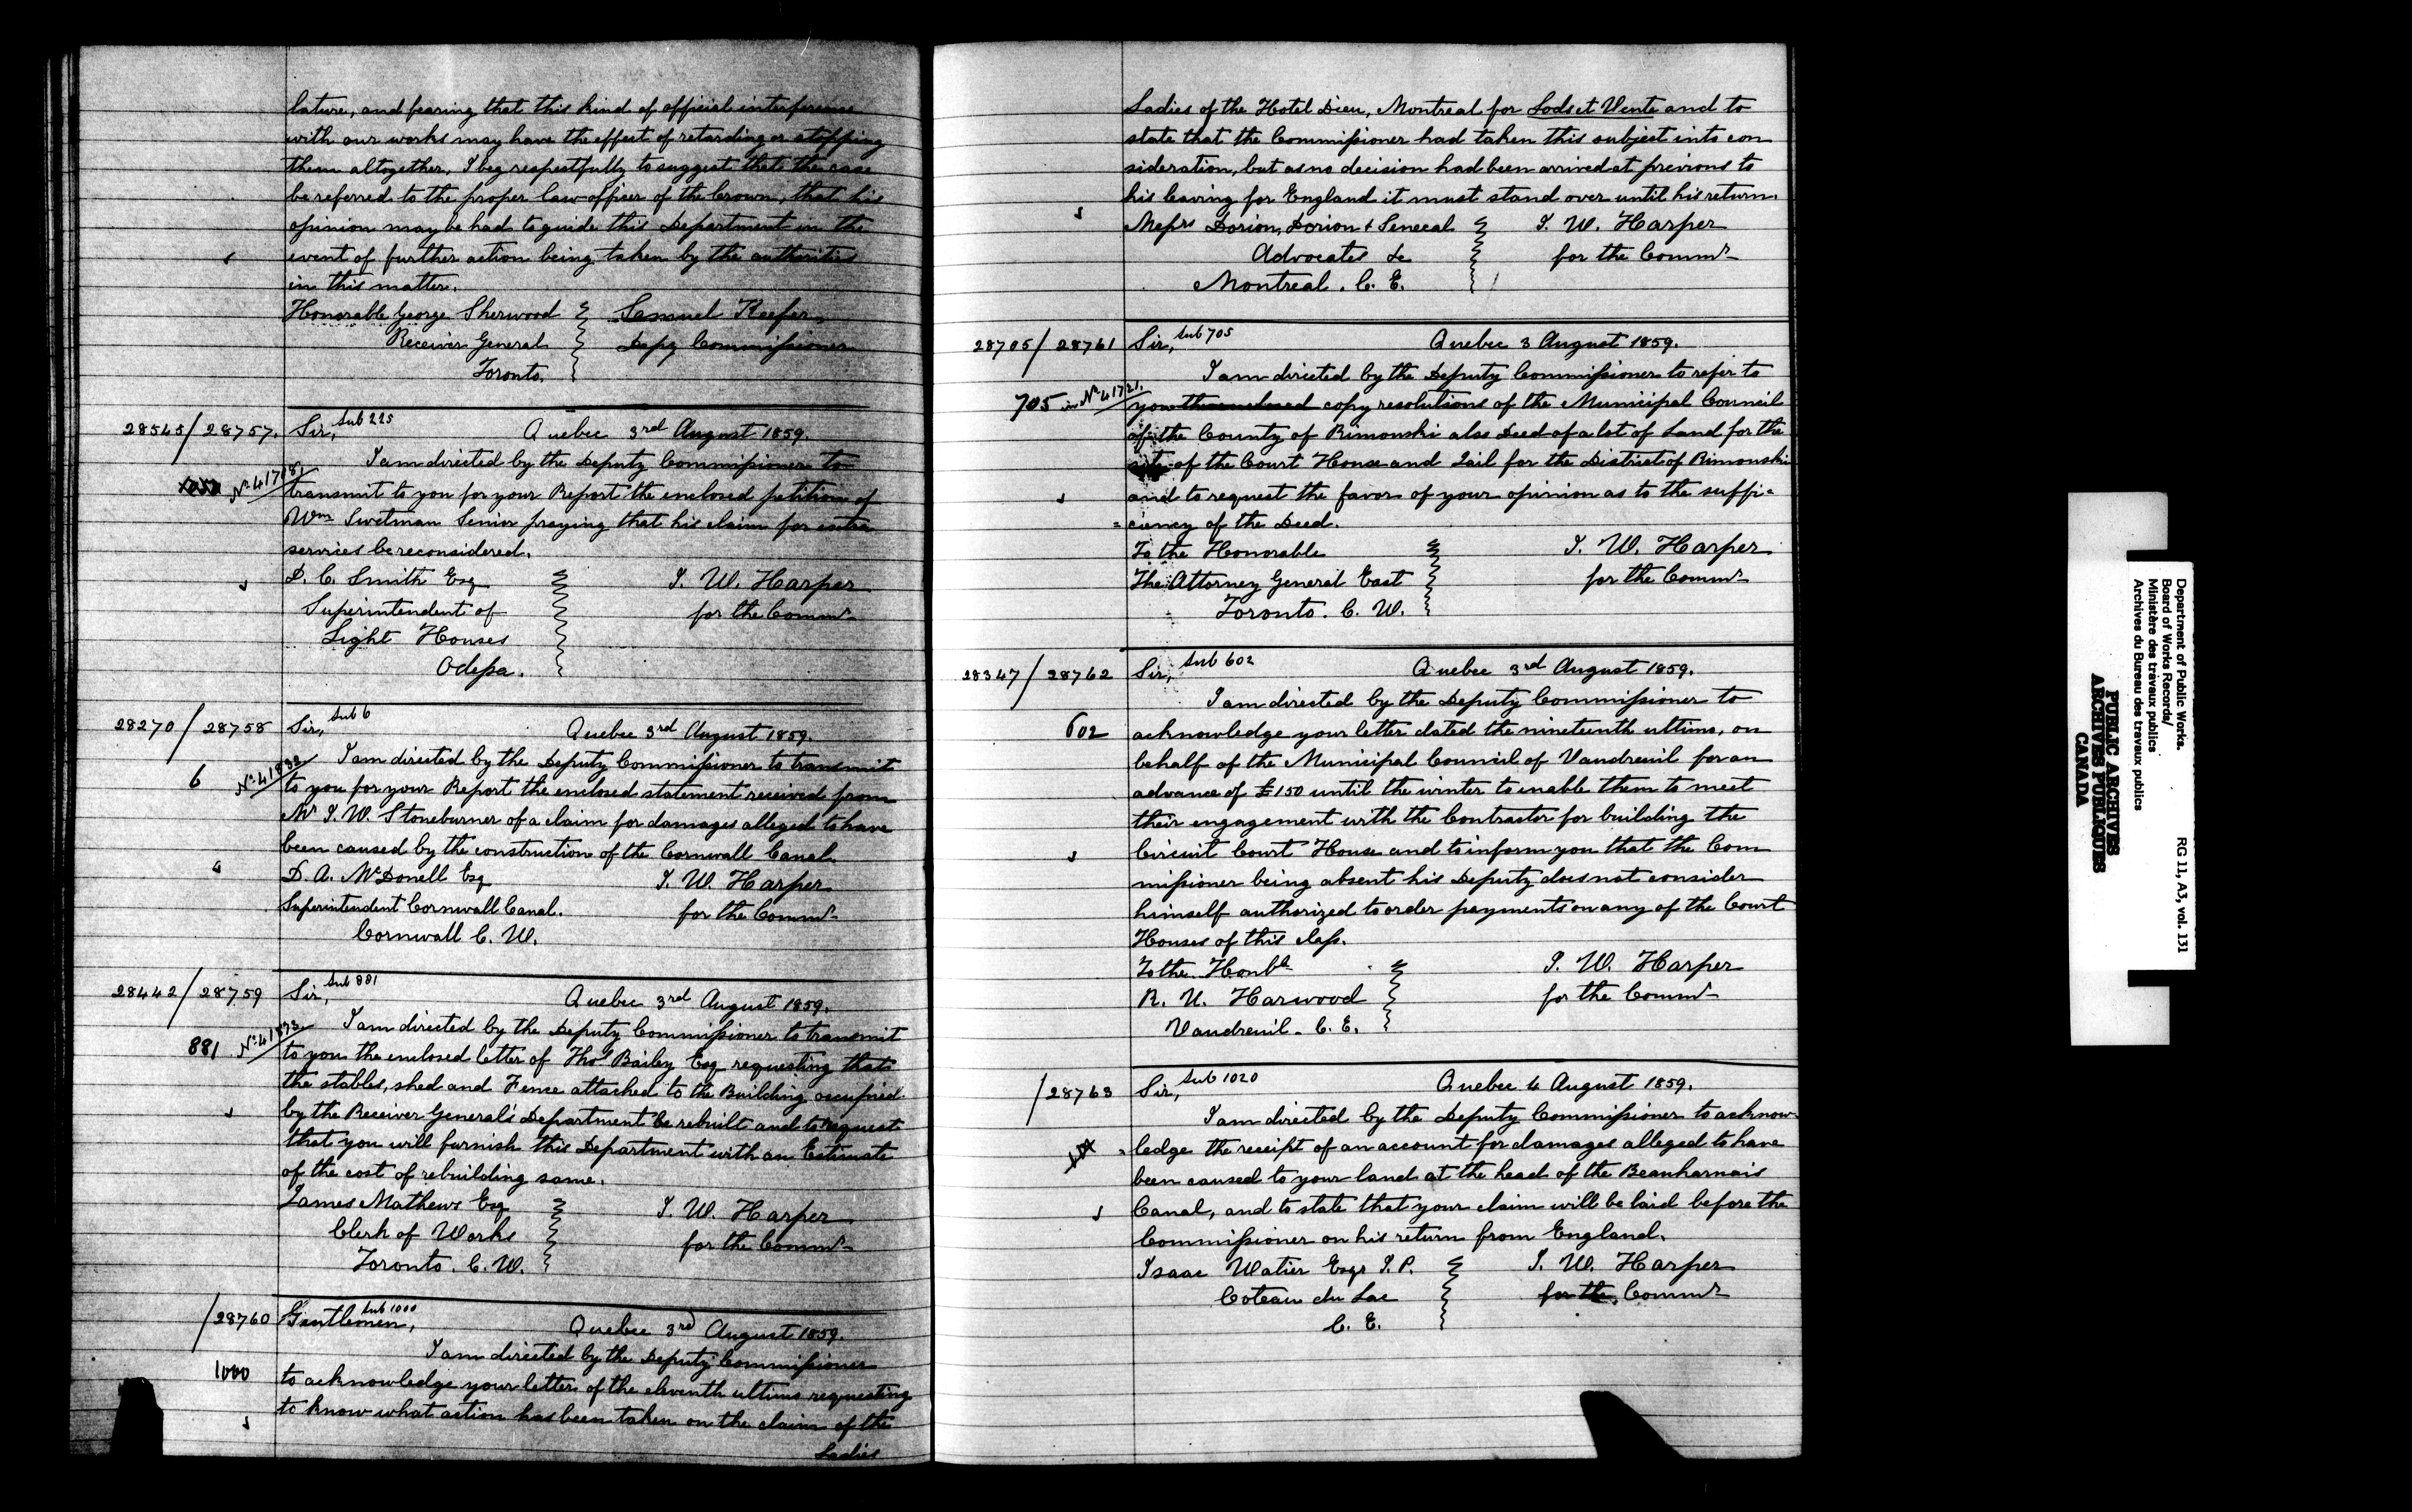 lature, and fearing that this kind of official interference
with our works may have the effect of retarding or stopping
them altogether, I beg respectfully to suggest that the case
be referred to the proper law officer of the Crown, that his
opinion may be had to guide this Department in the
event of further action being taken by the authorities
in this matter.
Honorable George Sherwood Samuel Keefer
Receiver General Depy Commissioner
Toronto.
28545/28757. Sir, Sub 225 Quebec 3rd August 1859.
I am directed by the Deputy Commissioner to
No 41781 transmit to you for your Report the enclosed petition of
Wm Swetman Senior praying that his claim for extra
services be reconsidered.
D. C. Smith Esq J. W. Harper
Superintendent of for the Commr
Light Houses
Odessa.
28270/28758 Sir, Sub 6 Quebec 3rd August 1859.
I am directed by the Deputy Commissioner to transmit
6 No 41832 to you for your Report the enclosed statement received from
Mr J. W. Stoneburner of a claim for damages alleged to have
been caused by the construction of the Cornwall Canal.
D. A. McDonell Esq J. W. Harper
Superintendent Cornwall Canal. for the Commr
Cornwall C. W.
28442/28759 Sir, Sub 881 Quebec 3rd August 1859.
I am directed by the Deputy Commissioner to transmit
881 No 41873 to you the enclosed letter of Thos Bailey Esq requesting that
the stables, shed and Fence attached to the Building occupied
by the Receiver General's Department be rebuilt and to request
that you will furnish this Department with an Estimate
of the cost of rebuilding same.
James Mathews Esq J. W. Harper
Clerk of Works for the Commr
Toronto. C. W.
/28760 Gentlemen, Sub 1000 Quebec 3rd August 1859.
I am directed by the Deputy Commissioner
1000 to acknowledge your letter of the eleventh ultimo requesting
to know what action has been taken on the claim of the
Ladies
Ladies of the Hotel Dieu, Montreal for Lods et Vente and to
state that the Commissioner had taken this subject into con
sideration, but as no decision had been arrived at previous to
his leaving for England it must stand over until his return.
Messrs Dorion, Dorion & Senecal J. W. Harper
Advocates &c for the Commr
Montreal. C. E.
28705/28761 Sir, Sub 705 Quebec 3 August 1859.
I am directed by the Deputy Commissioner to refer to
705 in No 41721. you the enclosed copy resolutions of the Municipal Council
of the County of Rimouski also Deed of a lot of Land for the
site of the Court House and Jail for the District of Rimouski
and to request the favor of your opinion as to the suffi=
=ciency of the Deed.
To the Honorable J. W. Harper
The Attorney General East for the Commr
Toronto. C. W.
28347/28762 Sir, Sub 602 Quebec 3rd August 1859.
I am directed by the Deputy Commissioner to
602 acknowledge your letter dated the nineteenth ultimo, on
behalf of the Municipal Council of Vaudreuil for an
advance of £150 until the winter to enable them to meet
their engagement with the Contractor for building the
Circuit Court House and to inform you that the Com
missioner being absent his Deputy does not consider
himself authorized to order payments on any of the Court
Houses of this class.
To the Honble J. W. Harper
R. U. Harwood for the Commr
Vaudreuil. C. E.
/28763 Sir, Sub 1020 Quebec 4 August 1859.
I am directed by the Deputy Commissioner to acknow
=ledge the receipt of an account for damages alleged to have
been caused to your land at the head of the Beauharnais
Canal, and to state that your claim will be laid before the
Commissioner on his return from England.
Isaac Watier Esqr J. P. J. W. Harper
Coteau du Lac for the Commr
C. E.
Department of Public Works.
Board of Works Records/
Ministère des travaux publics
Archives du Bureau des travaux publics
RG 11, A3, vol. 131
PUBLIC ARCHIVES
ARCHIVES PUBLIQUES
CANADA